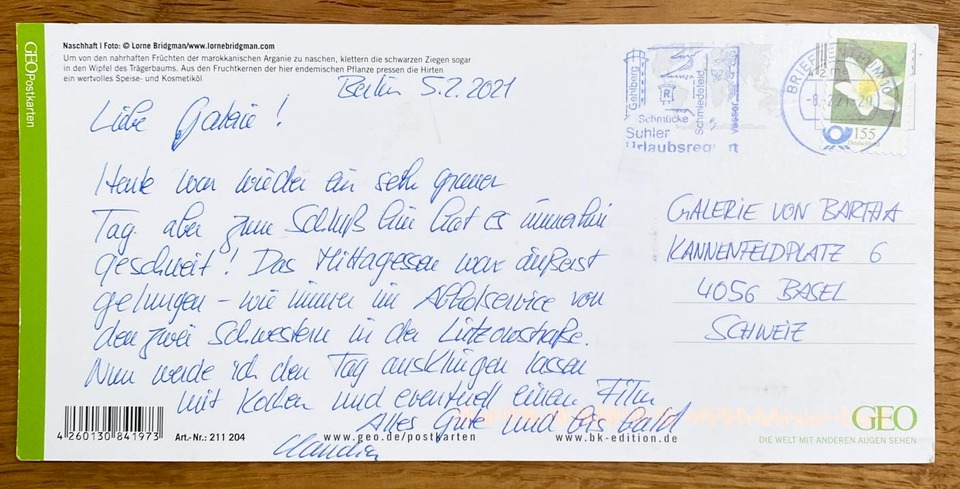 GEOPostkarten
Naschhaft | Foto: © Lorne Bridgman/www.lornebridgman.com
Um von den nahrhaften Früchten der marokkanischen Arganie zu naschen, klettern die schwarzen Ziegen sogar
in den Wipfel des Trägerbaums. Aus den Fruchtkernen der hier endemischen Pflanze pressen die Hirten
ein wertvolles Speise- und Kosmetiköl
Berlin 5.2.2021
Liebe Galerie!
Heute war wieder ein sehr grauer
Tag aber zum Schluß hin hat es immerhin
geschneit! Das Mittagessen war äußerst
gelungen – wie immer im Abholservice von
den zwei Schwestern in der Lützowstraße.
Nun werde ich den Tag ausklingen lassen
mit Kochen und eventuell einen Film
Alles Gute und bis bald
Claudia
Gehlberg
Schmücke
Schmiedefeld
Vesser
Suhler
Urlaubsregion
BRIEFZENTRUM
155
Deutschland
GALERIE VON BARTHA
KANNENFELDPLATZ 6
4056 BASEL
SCHWEIZ
4 260130 841973
Art.-Nr.: 211 204
www.geo.de/postkarten
www.bk-edition.de
GEO
DIE WELT MIT ANDEREN AUGEN SEHEN